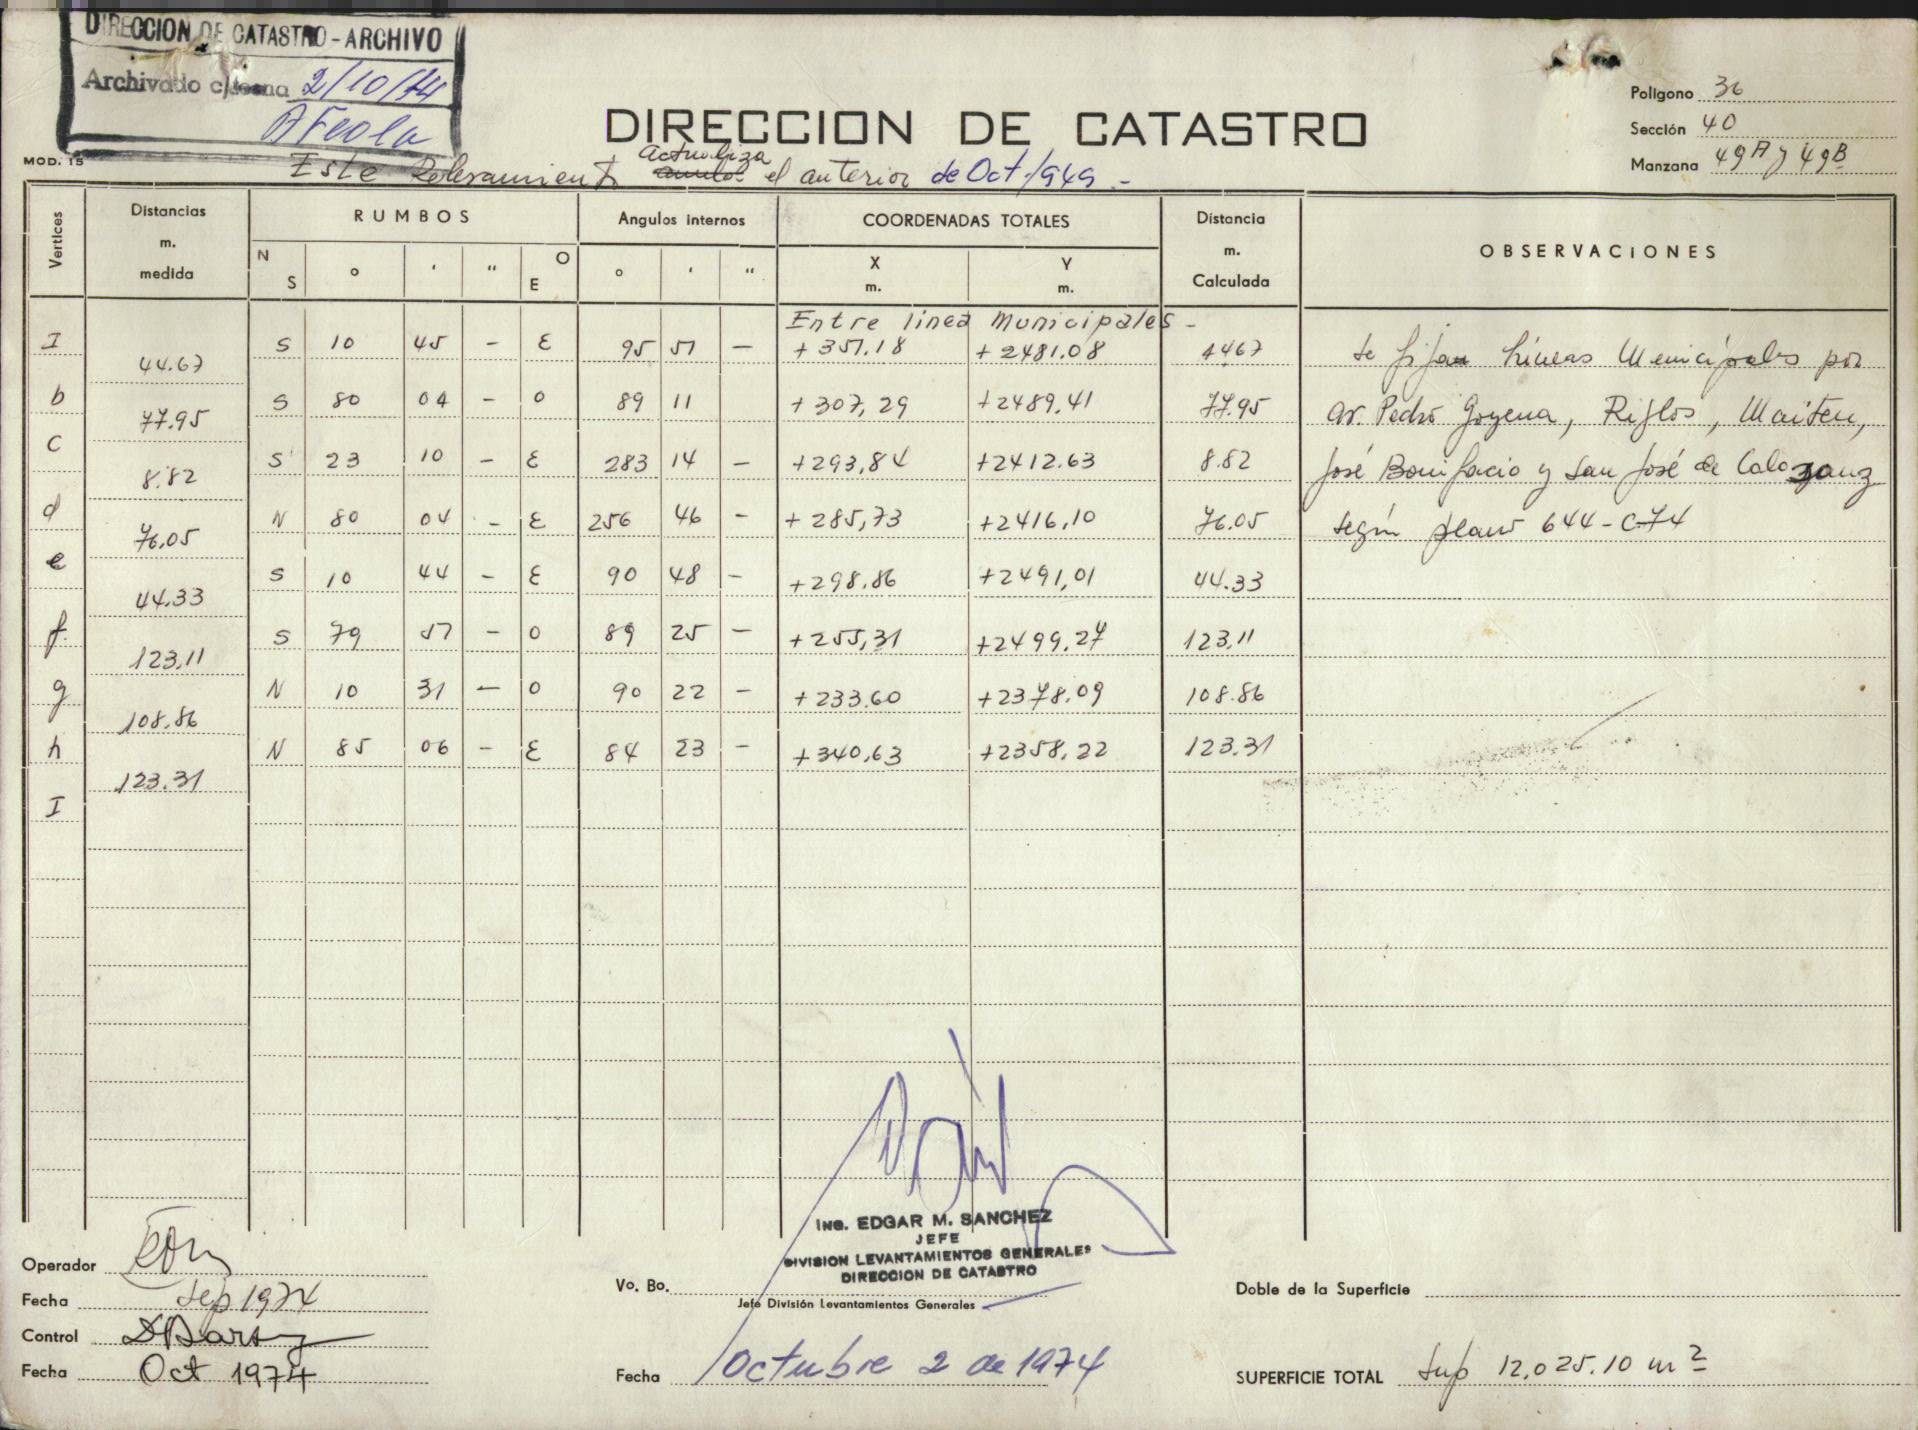 DIRECCION DE CATASTRO - ARCHIVO
Archivado c/ 2/10/74
A Feola
DIRECCION DE CATASTRO
Polígono 36
Sección 40
Manzana 49A y 49B
MOD. 15
actualiza
Este Relevamiento anula el anterior de Oct./949.-
Vertices Distancias m. medida RUMBOS Angulos internos COORDENADAS TOTALES Distancia m. Calculada OBSERVACIONES
N S ° ' " O E ° ' " X m. Y m.
Entre línea Municipales -
I S 10 45 - E 95 51 - +351.18 +2481.08 4467 Se fijan Líneas Municipales por
44.67
b S 80 04 - O 89 11 +307,29 +2489.41 77.95 av. Pedro Goyena, Riglos, Maiten,
77.95
c S 23 10 - E 283 14 - +293,84 +2412.63 8.82 José Bonifacio y San José de Calazanz
8.82
d N 80 04 - E 256 46 - +285,73 +2416,10 76.05 según plano 644-C-74
76.05
e S 10 44 - E 90 48 - +298.86 +2491,01 44.33
44.33
f. S 79 57 - O 89 25 - +255,31 +2499.27 123,11
123.11
g N 10 31 - O 90 22 - +233.60 +2378.09 108.86
108.86
h N 85 06 - E 84 23 - +340,63 +2358,22 123.31
123.31
I
Ing. EDGAR M. SANCHEZ
JEFE
DIVISION LEVANTAMIENTOS GENERALES
DIRECCION DE CATASTRO
Operador
Vo. Bo.
Jefe División Levantamientos Generales
Doble de la Superficie
Fecha Sep 1974
Control
Fecha Oct 1974
Fecha Octubre 2 de 1974
SUPERFICIE TOTAL Sup 12,025.10 m2